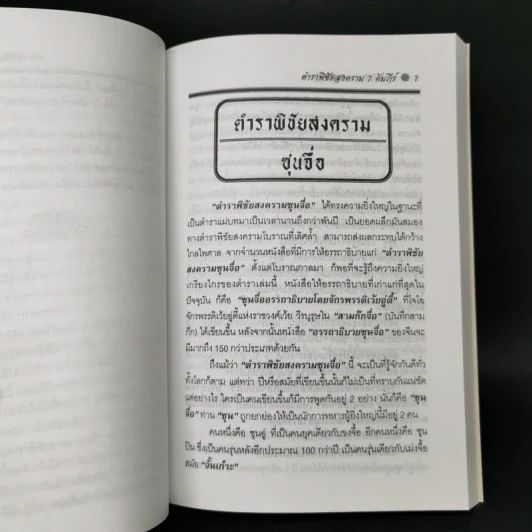 ตำราพิชัยสงคราม 7 คัมภีร์ 7
ตำราพิชัยสงคราม
ซุ่นจื่อ
“ตำราพิชัยสงครามซุ่นจื่อ” ได้ทรงความยิ่งใหญ่ในฐานะที่
เป็นตำราแม่บทมาเป็นเวลานานถึงกว่าพันปี เป็นยอดผลึกมันสมอง
ทางตำราพิชัยสงครามโบราณที่เลิศล้ำ สามารถส่งผลกระทบได้กว้าง
ไกลไพศาล จากจำนวนหนังสือที่มีการให้อรรถาธิบายแก่ “ตำราพิชัย
สงครามซุนจื่อ” ตั้งแต่โบราณกาลมา ก็พอที่จะรู้ถึงความยิ่งใหญ่
เกรียงไกรของตำราเล่มนี้ หนังสือให้อรรถาธิบายที่เก่าแก่ที่สุดใน
ปัจจุบัน ก็คือ “ซุนจื่ออรรถาธิบายโดยจักรพรรดิเว่ยอู่ตี้” ที่โจโฉ
จักรพรรดิเว่ยอู่ตี้แห่งราชวงศ์เว่ย วีรบุรุษใน “สามก๊กจื่อ” (บันทึกสาม
ก๊ก) ได้เขียนขึ้น หลังจากนั้นหนังสือ “อรรถาธิบายซุนจื่อ” ของจีนจะ
มีมากถึง 150 กว่าประเภทด้วยกัน
ถึงแม้ว่า “ตำราพิชัยสงครามซุนจื่อ” นี้ จะเป็นที่รู้จักกันดีทั่ว
ทั้งโลกก็ตาม แต่ทว่า ปีหรือสมัยที่เขียนขึ้นนั้นก็ไม่เป็นที่ทราบกันแน่ชัด
แต่อย่างไร ใครเป็นคนเขียนขึ้นก็มีการพูดกันอยู่ 2 อย่าง นั่นก็คือ “ซุน
จื่อ” ท่าน “ซุน” ถูกยกย่องให้เป็นนักการทหารผู้ยิ่งใหญ่นี้มีอยู่ 2 คน
คนหนึ่งคือ ซุนอู่ ที่เป็นคนยุคเดียวกับขงจื้อ อีกคนหนึ่งคือ ซุน
ปิน ซึ่งเป็นคนรุ่นหลังอีกประมาณ 100 กว่าปี เป็นคนรุ่นเดียวกับเม่งจื้อ
สมัย “จั้นเก๋าะ”